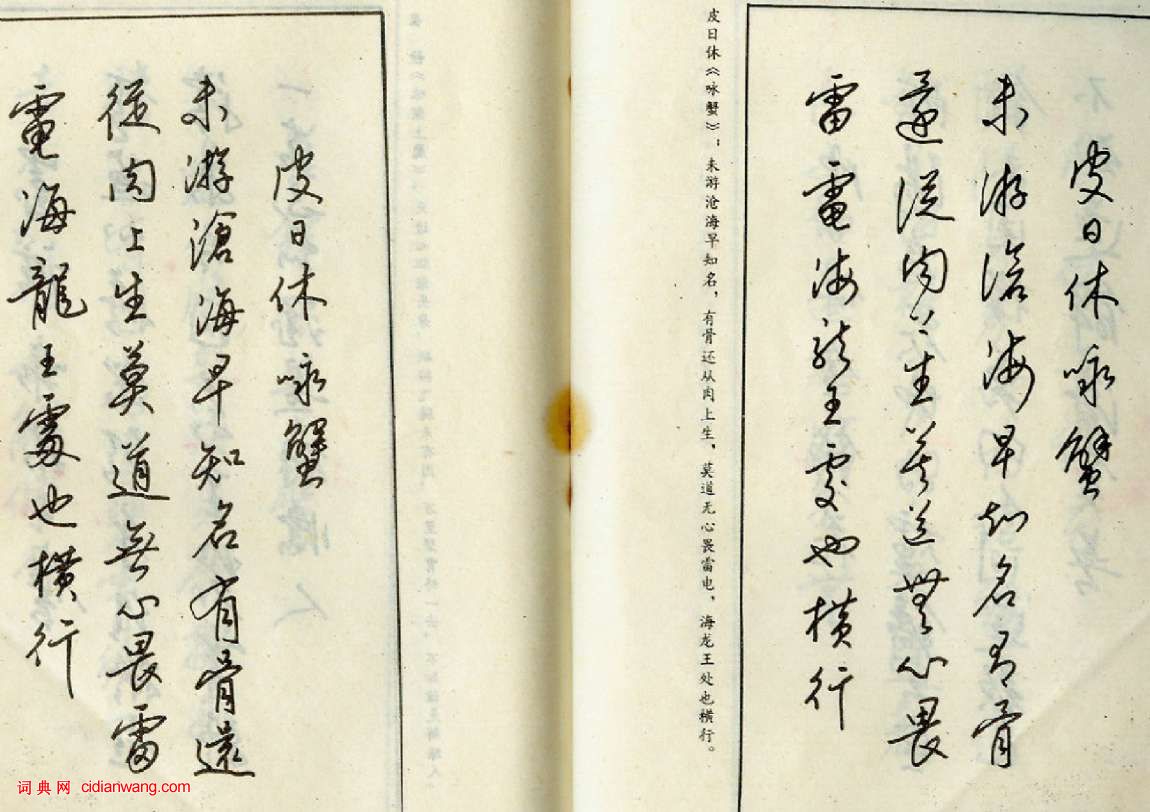 皮日休咏蟹
未游滄海早知名有骨
還從肉上生莫道無心畏
雷電海龍王處也横行
皮日休《咏蟹》：未游沧海早知名，有骨还从肉上生，莫道无心畏雷电，海龙王处也横行。
皮日休咏蟹
未游滄海早知名有骨還
從肉上生莫道無心畏雷
電海龍王處也横行
词典网 cidianwang.com